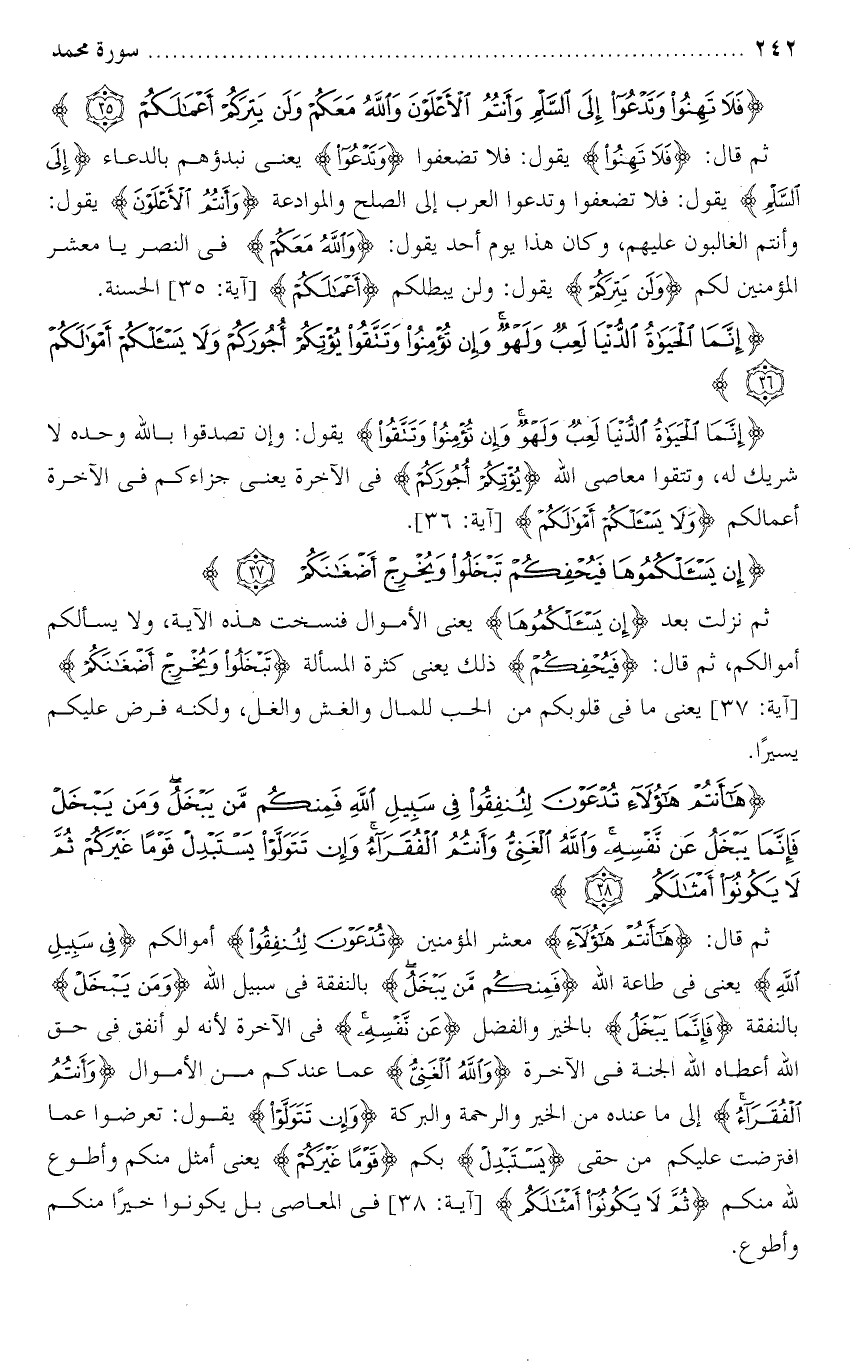 ٢٤٢ ........................................................................ سورة محمد
﴿فَلَا تَهِنُوا۟ وَتَدْعُوٓا۟ إِلَى ٱلسَّلْمِ وَأَنتُمُ ٱلْأَعْلَوْنَ وَٱللَّهُ مَعَكُمْ وَلَن يَتِرَكُمْ أَعْمَـٰلَكُمْ ٣٥﴾
ثم قال: ﴿فَلَا تَهِنُوا۟﴾ يقول: فلا تضعفوا ﴿وَتَدْعُوٓا۟﴾ يعنى نبدؤهم بالدعاء ﴿إِلَى
ٱلسَّلْمِ﴾ يقول: فلا تضعفوا وتدعوا العرب إلى الصلح والموادعة ﴿وَأَنتُمُ ٱلْأَعْلَوْنَ﴾ يقول:
وأنتم الغالبون عليهم، وكان هذا يوم أحد يقول: ﴿وَٱللَّهُ مَعَكُمْ﴾ فى النصر يا معشر
المؤمنين لكم ﴿وَلَن يَتِرَكُمْ﴾ يقول: ولن يبطلكم ﴿أَعْمَـٰلَكُمْ﴾ [آية: ٣٥] الحسنة.
﴿إِنَّمَا ٱلْحَيَوٰةُ ٱلدُّنْيَا لَعِبٌ وَلَهْوٌ ۚ وَإِن تُؤْمِنُوا۟ وَتَتَّقُوا۟ يُؤْتِكُمْ أُجُورَكُمْ وَلَا يَسْـَٔلْكُمْ أَمْوَٰلَكُمْ
٣٦﴾
﴿إِنَّمَا ٱلْحَيَوٰةُ ٱلدُّنْيَا لَعِبٌ وَلَهْوٌ ۚ وَإِن تُؤْمِنُوا۟ وَتَتَّقُوا۟﴾ يقول: وإن تصدقوا بالله وحده لا
شريك له، وتتقوا معاصى الله ﴿يُؤْتِكُمْ أُجُورَكُمْ﴾ فى الآخرة يعنى جزاءكم فى الآخرة
أعمالكم ﴿وَلَا يَسْـَٔلْكُمْ أَمْوَٰلَكُمْ﴾ [آية: ٣٦].
﴿إِن يَسْـَٔلْكُمُوهَا فَيُحْفِكُمْ تَبْخَلُوا۟ وَيُخْرِجْ أَضْغَـٰنَكُمْ ٣٧﴾
ثم نزلت بعد ﴿إِن يَسْـَٔلْكُمُوهَا﴾ يعنى الأموال فنسخت هذه الآية، ولا يسألكم
أموالكم، ثم قال: ﴿فَيُحْفِكُمْ﴾ ذلك يعنى كثرة المسألة ﴿تَبْخَلُوا۟ وَيُخْرِجْ أَضْغَـٰنَكُمْ﴾
[آية: ٣٧] يعنى ما فى قلوبكم من الحب للمال والغش والغل، ولكنه فرض عليكم
يسيرًا.
﴿هَـٰٓأَنتُمْ هَـٰٓؤُلَآءِ تُدْعَوْنَ لِتُنفِقُوا۟ فِى سَبِيلِ ٱللَّهِ فَمِنكُم مَّن يَبْخَلُ ۖ وَمَن يَبْخَلْ
فَإِنَّمَا يَبْخَلُ عَن نَّفْسِهِۦ ۚ وَٱللَّهُ ٱلْغَنِىُّ وَأَنتُمُ ٱلْفُقَرَآءُ ۚ وَإِن تَتَوَلَّوْا۟ يَسْتَبْدِلْ قَوْمًا غَيْرَكُمْ ثُمَّ
لَا يَكُونُوٓا۟ أَمْثَـٰلَكُم ٣٨﴾
ثم قال: ﴿هَـٰٓأَنتُمْ هَـٰٓؤُلَآءِ﴾ معشر المؤمنين ﴿تُدْعَوْنَ لِتُنفِقُوا۟﴾ أموالكم ﴿فِى سَبِيلِ
ٱللَّهِ﴾ يعنى فى طاعة الله ﴿فَمِنكُم مَّن يَبْخَلُ ۖ﴾ بالنفقة فى سبيل الله ﴿وَمَن يَبْخَلْ﴾
بالنفقة ﴿فَإِنَّمَا يَبْخَلُ﴾ بالخير والفضل ﴿عَن نَّفْسِهِۦ ۚ﴾ فى الآخرة لأنه لو أنفق فى حق
الله أعطاه الله الجنة فى الآخرة ﴿وَٱللَّهُ ٱلْغَنِىُّ﴾ عما عندكم من الأموال ﴿وَأَنتُمُ
ٱلْفُقَرَآءُ ۚ﴾ إلى ما عنده من الخير والرحمة والبركة ﴿وَإِن تَتَوَلَّوْا۟﴾ يقول: تعرضوا عما
افترضت عليكم من حقى ﴿يَسْتَبْدِلْ﴾ بكم ﴿قَوْمًا غَيْرَكُمْ﴾ يعنى أمثل منكم وأطوع
لله منكم ﴿ثُمَّ لَا يَكُونُوٓا۟ أَمْثَـٰلَكُم﴾ [آية: ٣٨] فى المعاصى بل يكونوا خيرًا منكم
وأطوع.